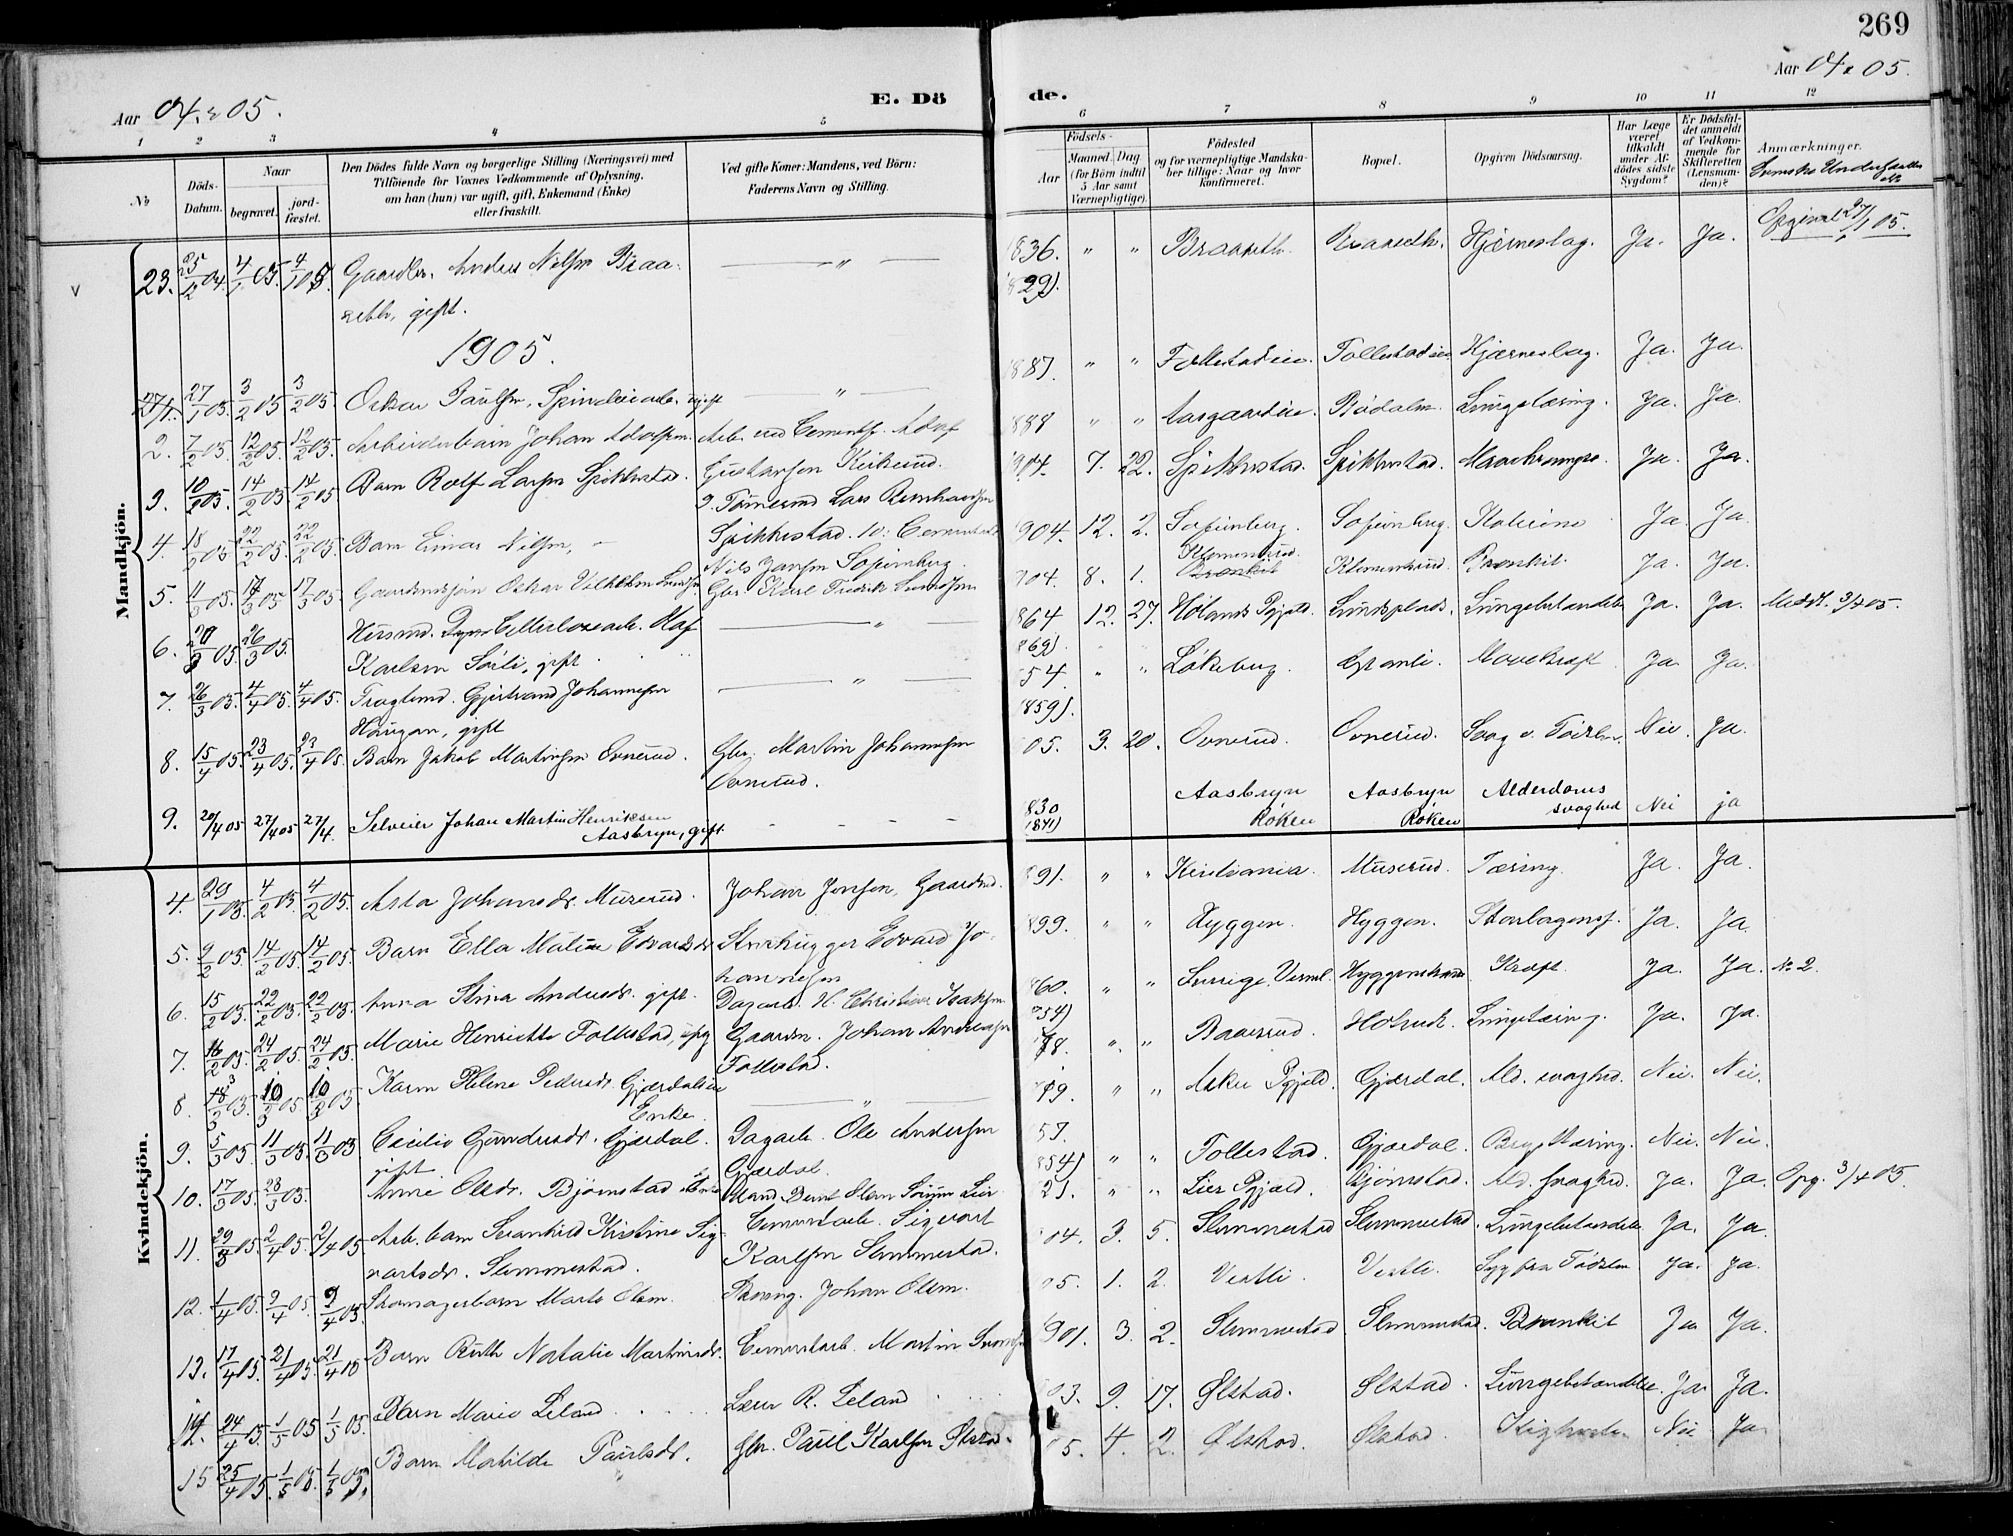 269
Aar 04 & 05.
Aar 04 & 05.
E. Dö de.
1 2 3 4 5 6 7 8 9 10 11 12
No
Döds-Datum.
Naar
begravet.
jord-fæstet.
Den Dödes fulde Navn og borgerlige Stilling (Næringsvei) med
Tilföiende for Voxnes Vedkommende af Oplysning.
om han (hun) var ugift, gift, Enkemand (Enke)
eller fraskilt.
Ved gifte Koner: Mandens, ved Börn:
Faderens Navn og Stilling.
Födsels-
Aar
Maaned. Dag
(for Börn indtil
5 Aar samt
Værnepligtige).
Födested
og for værnepligtige Mandska-
ber tillige: Naar og hvor
konfirmeret.
Bopæl.
Opgiven Dödsaarsag.
Har Læge
været
tilkaldt
under Af-
dödes sidste
Sygdom?
Er Dödsfal-
det anmeldt
af Vedkom-
mende for
Skifteretten
(Lensman-
den)?
Anmærkninger.
Svenske Undersaatter
Mandkjön.
23. 25/12 04. 4/1 05. 4/1 05 Gaardbr. Anders Nilsen Braa- — „ — 1836. „ „ Braareth. Braareth. Hjerneslag. Ja. Ja. Opgivet 27/1 05.
reth, gift. 1829).
1905.
27/1. 27/1 05. 3/2 05 3/2 05. Oskar Paulsen, Spinderiarb. ugift — „ — 1887. „ „ Follestadeie. Follestadeie Hjerneslag. Ja. Ja.
2. 7/2 05. 12/2 05. 12/2 05. Arbeiderbarn Johan Adolfsen. Arb. ved Cementf. Adolf 1888 „ „ Aasgaardeie. Bödalen. Lungetæring. Ja. Ja.
Gustavsen Kikerud.
3. 10/2 05. 14/2 05 14/2 05 Barn Rolf Larsen Spikkestad. Tömmermd Lars Bernhardsen 1904. 7. 22. Spikkestad. Spikkestad. Mavekrampe. Ja. Ja.
Spikkestad.
4. 18/2 05 22/2 05. 22/2 05. Barn Einar Nilsen, Nils Jansen Sofienberg. 1904. 12. 2. Sofienberg. Sofienberg. Kolerine Ja. Ja.
5. 11/3 05. 17/3 05 17/3 05. Gaardmdssön Oskar Vilhelm Gbr. Karl Fredrik 1904. 8. 1. Klemmerud. Klemmerud. Bronkit. Ja. Ja.
6. 20/3 05. 26/3 05. Husmd. Cellulosearb. Olaf — „ — 1864 12. 27. Hölands Pgjæld. Lindsplads. Lungebetændelse Ja. Ja. Medd. 3/4 05.
Karlsen Sörli, gift. 1869).
7. 26/3 05. 4/4 05. 4/4 05. Gjertrand Johannesen — „ — 54 „ „ Løkeberg. Granli. Mavekræft. Ja. Ja.
Haugan, gift 1859).
8. 15/4 05. 23/4 05. 23/4 05. Barn Jakob Martinsen Ovnerud. Gbr. Martin Johannesen 05. 3. 20. Ovnerud. Ovnerud. Svag v. Födselen. Nei. Ja.
Ovnerud.
9. 20/4 05 27/4 05 27/4. Selveier Johan Martin Henriksen - - - - 1830 Aasbryn Aasbryn Alderdoms Nei ja
Aasbryn, gift. 1841) Röken Röken svaghed
Kvindekjön.
4. 29/1 05. 4/2 05 4/2 05. Asta Johansdr. Muserud. Johan Jensen, Gaardmd. 1891. „ „ Kristiania. Muserud. Tæring. Ja. Ja.
5. 9/2 05. 14/2 05. 14/2 05. Barn Ella Maline Edvardsdr. Stenhugger Edvard Jo- 1899. „ „ Hyggen. Hyggen. Ja. Ja.
hannesen
6. 15/2 05. 22/2 05. 22/2 05. Anna Stina Andersdr. gift. Dagarb. H. Christian Isaksen. 1860. „ „ Sverige, Verml. Hyggenstrand Kræft. Ja. Ja. No 2.
1854)
7. 16/2 05. 24/2 05. 24/2 05. Marie Henriette Follestad, ugift Gaardm. Johan Andreasen 78. „ „ Baaserud. Lungetæring. Ja. Ja.
Follestad.
8. 3/3 05. 10/3 05 10/3 05. Karen Helene Pedersdr. Gjerdaleie — „ — 1819. „ „ Asker Pgjæld. Gjærdal. Ald. svaghed. Nei. Nei.
Enke.
9. 5/3 05. 11/3 05. 11/3 05 Cecilie Gundersdr. Gjærdal. Dagarb. Ole Andersen 57. „ „ Follestad. Gjærdal. Brysttæring. Nei. Nei.
gift Gjærdal. 1854)
10. 17/3 05. 23/3 05. Anne Olsdr. Björnstad Enke Mand Bernt Olsen Lier 21. „ „ Lier Pgjæld. Björnstad. Ald. svaghed. Ja. Ja. Opg. 3/4 05.
11. 29/3 05. 2/4 05. 2/4 05 Arb. barn Svanhild Kristine Sig- Cementarb. Sigevart 1904. 3. 5. Slemmestad Slemmestad. Lungebetændelse Ja. Ja.
vartsdr. Slemmestad. Karlsen Slemmestad.
12. 1/4 05. 9/4 05. 9/4 05. Skomagerbarn Marta Olsen. Johan Olsen. 05. 1. 2. Vestli. Vestli. Syg fra Födselen Ja. Ja.
13. 17/4 05. 21/4 05. 21/4 05 Barn Ruth Natalie Martinsdr. Cementarb. Martin 1901. 3. 2. Slemmestad Slemmestad. Bronkit Ja Ja.
14. 24/4 05. 1/5 05 1/5 05. Barn Marie Leland. Lærer R. Leland 03. 9. 17. Ølstad. Ølstad. Lungebetændelse. Ja. Ja.
15 25/4 05. 1/5 05. 1/5 05. Barn Mathilde Paulsdr. Gbr. Paul Karlsen Ølstad. 05. 4. 2. Ølstad. Ølstad. Kighoste. Nei Ja